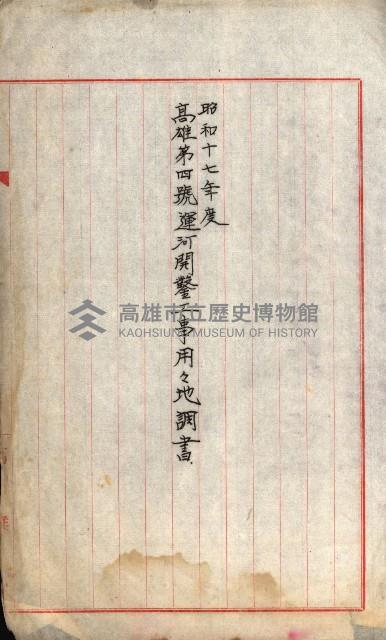 昭和十七年度
高雄第四號運河開鑿工事用々地調書
高雄市立歷史博物館
KAOHSIUNG MUSEUM OF HISTORY